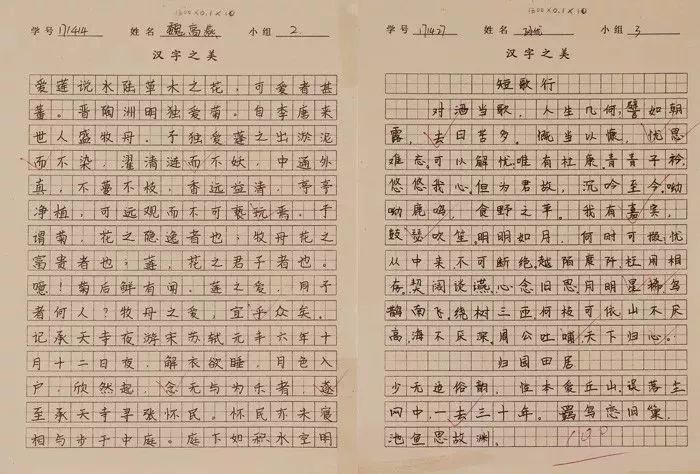 1300×0.1×10
学号 171414 姓名 魏高燕 小组 2
汉字之美
爱莲说水陆草木之花,可爱者甚
蕃。晋陶渊明独爱菊。自李唐来
世人盛牡丹。予独爱莲之出淤泥
而不染,濯清涟而不妖,中通外
直,不蔓不枝,香远益清,亭亭
净植,可远观而不可亵玩焉。予
谓菊,花之隐逸者也;牡丹花之
富贵者也;莲,花之君子者也。
噫!菊后鲜有闻。莲之爱,同予
者何人?牡丹之爱,宜乎众矣。
记承天寺夜游宋苏轼元丰六年十
月十二日夜,解衣欲睡,月色入
户,欣然起,念无与为乐者,遂
至承天寺寻张怀民。怀民亦未寝
相与步于中庭。庭下如积水空明
1300×0.1×10
学号 171427 姓名 小组 3
汉字之美
短歌行
对酒当歌,人生几何,譬如朝
露,去日苦多。慨当以慷,忧思
难忘,可以解忧唯有杜康青青子衿
悠悠我心,但为君故,沉吟至今,呦
呦鹿鸣,食野之苹。我有嘉宾,
鼓瑟吹笙,明明如月,何时可掇,忧
从中来不可断绝,越陌度阡,枉用相
存,契阔谈燕,心念旧恩,月明星稀乌
鹊南飞,绕树三匝,何枝可依山不厌
高,海不厌深,周公吐哺,天下归心。
归园田居
少无适俗韵,性本爱丘山,误落尘
网中,一去三十年。羁鸟恋旧巢,
池鱼思故渊。 190